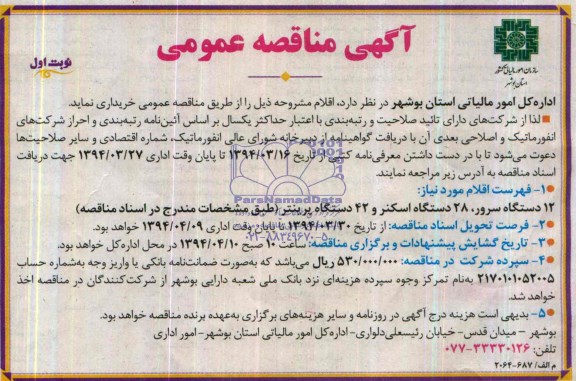 آگهی مناقصه عمومی
سازمان امور مالیاتی کشور
استان بوشهر
نوبت اول
اداره کل امور مالیاتی استان بوشهر در نظر دارد، اقلام مشروحه ذیل را از طریق مناقصه عمومی خریداری نماید.
لذا از شرکت‌های دارای تائید صلاحیت و رتبه‌بندی با اعتبار حداکثر یکسال بر اساس آئین‌نامه رتبه‌بندی و احراز شرکت‌های
انفورماتیک و اصلاحی بعدی آن با دریافت گواهینامه از دبیرخانه شورای عالی انفورماتیک، شماره اقتصادی و سایر صلاحیت‌ها
دعوت می‌شود تا با در دست داشتن معرفی‌نامه کتبی از تاریخ ۱۳۹۴/۰۳/۱۶ تا پایان وقت اداری ۱۳۹۴/۰۳/۲۷ جهت دریافت
اسناد مناقصه به آدرس زیر مراجعه نمایند.
۱- فهرست اقلام مورد نیاز:
۱۲ دستگاه سرور، ۲۸ دستگاه اسکنر و ۴۲ دستگاه پرینتر (طبق مشخصات مندرج در اسناد مناقصه)
۲- فرصت تحویل اسناد مناقصه: از تاریخ ۱۳۹۴/۰۳/۳۰ تا پایان وقت اداری ۱۳۹۴/۰۴/۰۹ خواهد بود.
۳- تاریخ گشایش پیشنهادات و برگزاری مناقصه: ساعت ۱۰ صبح ۱۳۹۴/۰۴/۱۰ در محل اداره کل خواهد بود.
۴- سپرده شرکت در مناقصه: ۵۳۰/۰۰۰/۰۰۰ ریال می‌باشد که به‌صورت ضمانت‌نامه بانکی یا واریز وجه به‌شماره حساب
۲۱۷۰۱۰۱۰۵۲۰۰۵ به‌نام تمرکز وجوه سپرده هزینه‌ای نزد بانک ملی شعبه دارایی بوشهر از شرکت‌کنندگان در مناقصه اخذ
خواهد شد.
۵- بدیهی است هزینه درج آگهی در روزنامه و سایر هزینه‌های برگزاری به‌عهده برنده مناقصه خواهد بود.
بوشهر - میدان قدس- خیابان رئیسعلی‌دلواری- اداره کل امور مالیاتی استان بوشهر- امور اداری
تلفن: ۰۷۷-۳۳۳۳۰۱۲۶
م الف/ ۶۸۷-۲۰۶۴
ParsNamadData
۰۲۱-۸۸۳۴۹۶۷۰